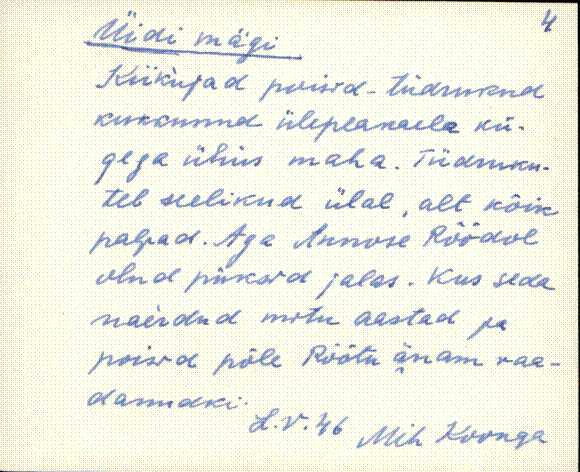 4
Üidi mägi
Kiikujad poisid-tüdrukud
kukkunud ülepeakaela kii-
gega ühüs maha. Tüdruku-
tel seelikud ülal, alt kõik
paljad. Aga Annose Röödol
olnd püksid jalas. Kus seda
naerdud mitu aastad ja
poisid põle Röötu änam vaa-
danudki.
L.V. 46 Mih Koonga